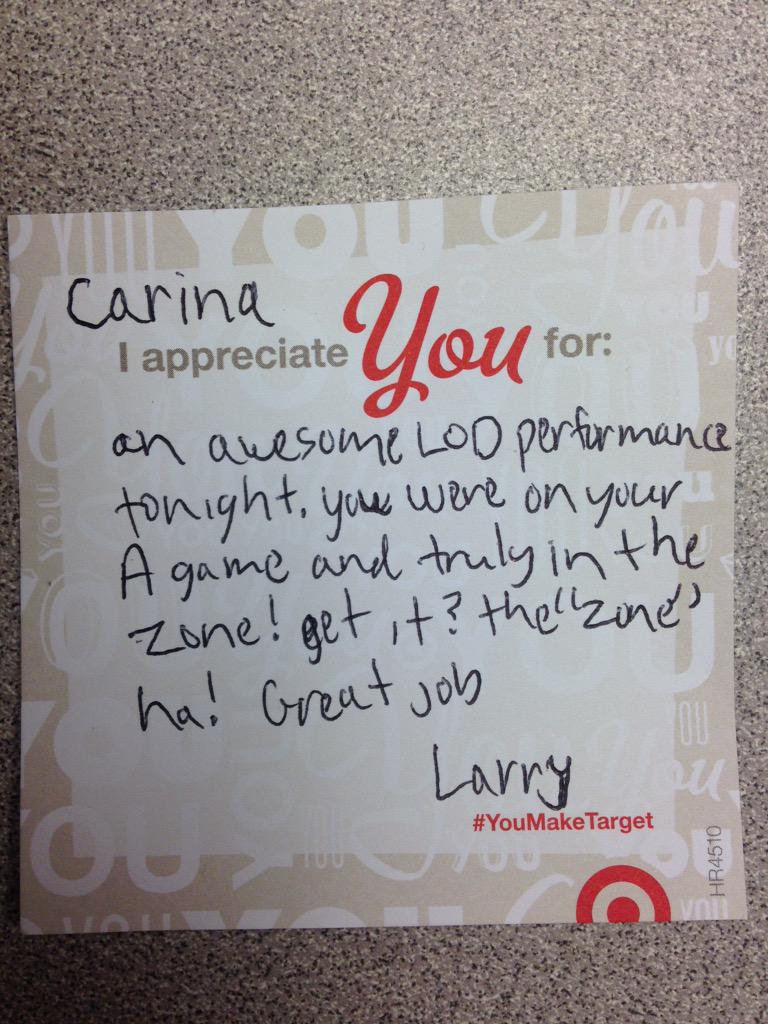 Carina
I appreciate You for:
an awesome LOD performance
tonight. you were on your
A game and truly in the
zone! get it? the "zone"
ha! Great job
Larry
#YouMakeTarget
HR4510